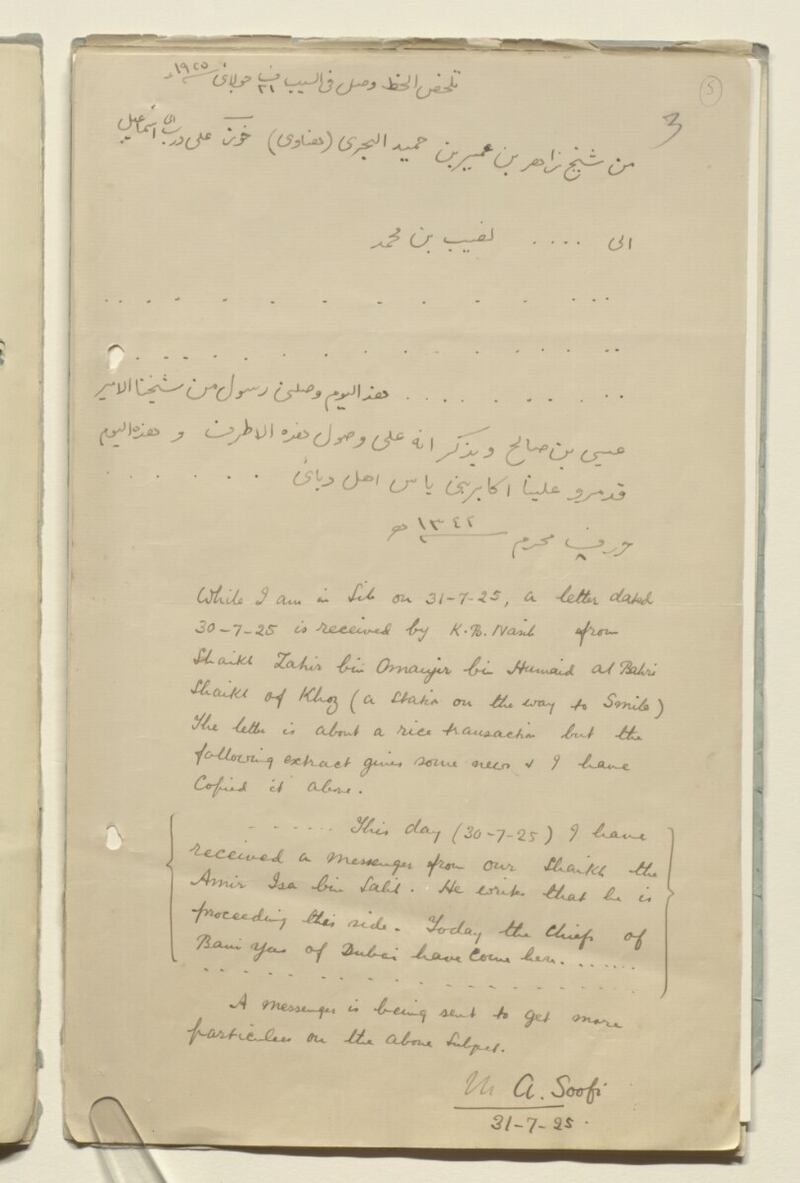 5
3
تلخص الخط وصل في السيب في ٣١ جولائ ١٩٢٥ء
من شيخ زاهر بن عمير بن حميد البحري (هناوى) على درب اسماعيل
الى .... نصيب بن محمد
. . . . . . . . . . . . . .
. . . . . . . . . . . . . .
. . . . . . . . . هذ اليوم وصلنى رسول من شيخنا الامير
عيسى بن صالح ويذكر انه على وصول هذه الاطرف و هذه اليوم
قدمرو علينا اكابر بنى ياس اهل دبائ . . . . . .
حرر في ٨ محرم ١٣٤٢ هـ
While I am in Sib on 31-7-25, a letter dated
30-7-25 is received by K.B. Nasib from
Shaikh Zahir bin Omayir bin Humaid al Bahri
Shaikh of Khoz (a station on the way to Smile)
The letter is about a rice transaction but the
following extract gives some news & I have
Copied it above.
. . . . . . This day (30-7-25) I have
received a messenger from our Shaikh the
Amir Isa bin Salih. He writes that he is
proceeding this side. Today the Chiefs of
Bani Yas of Dubai have come here. . . . . .
. . . . . . . . . . . . . . . .
A messenger is being sent to get more
particulars on the above subject.
M A. Soofi
31-7-25.